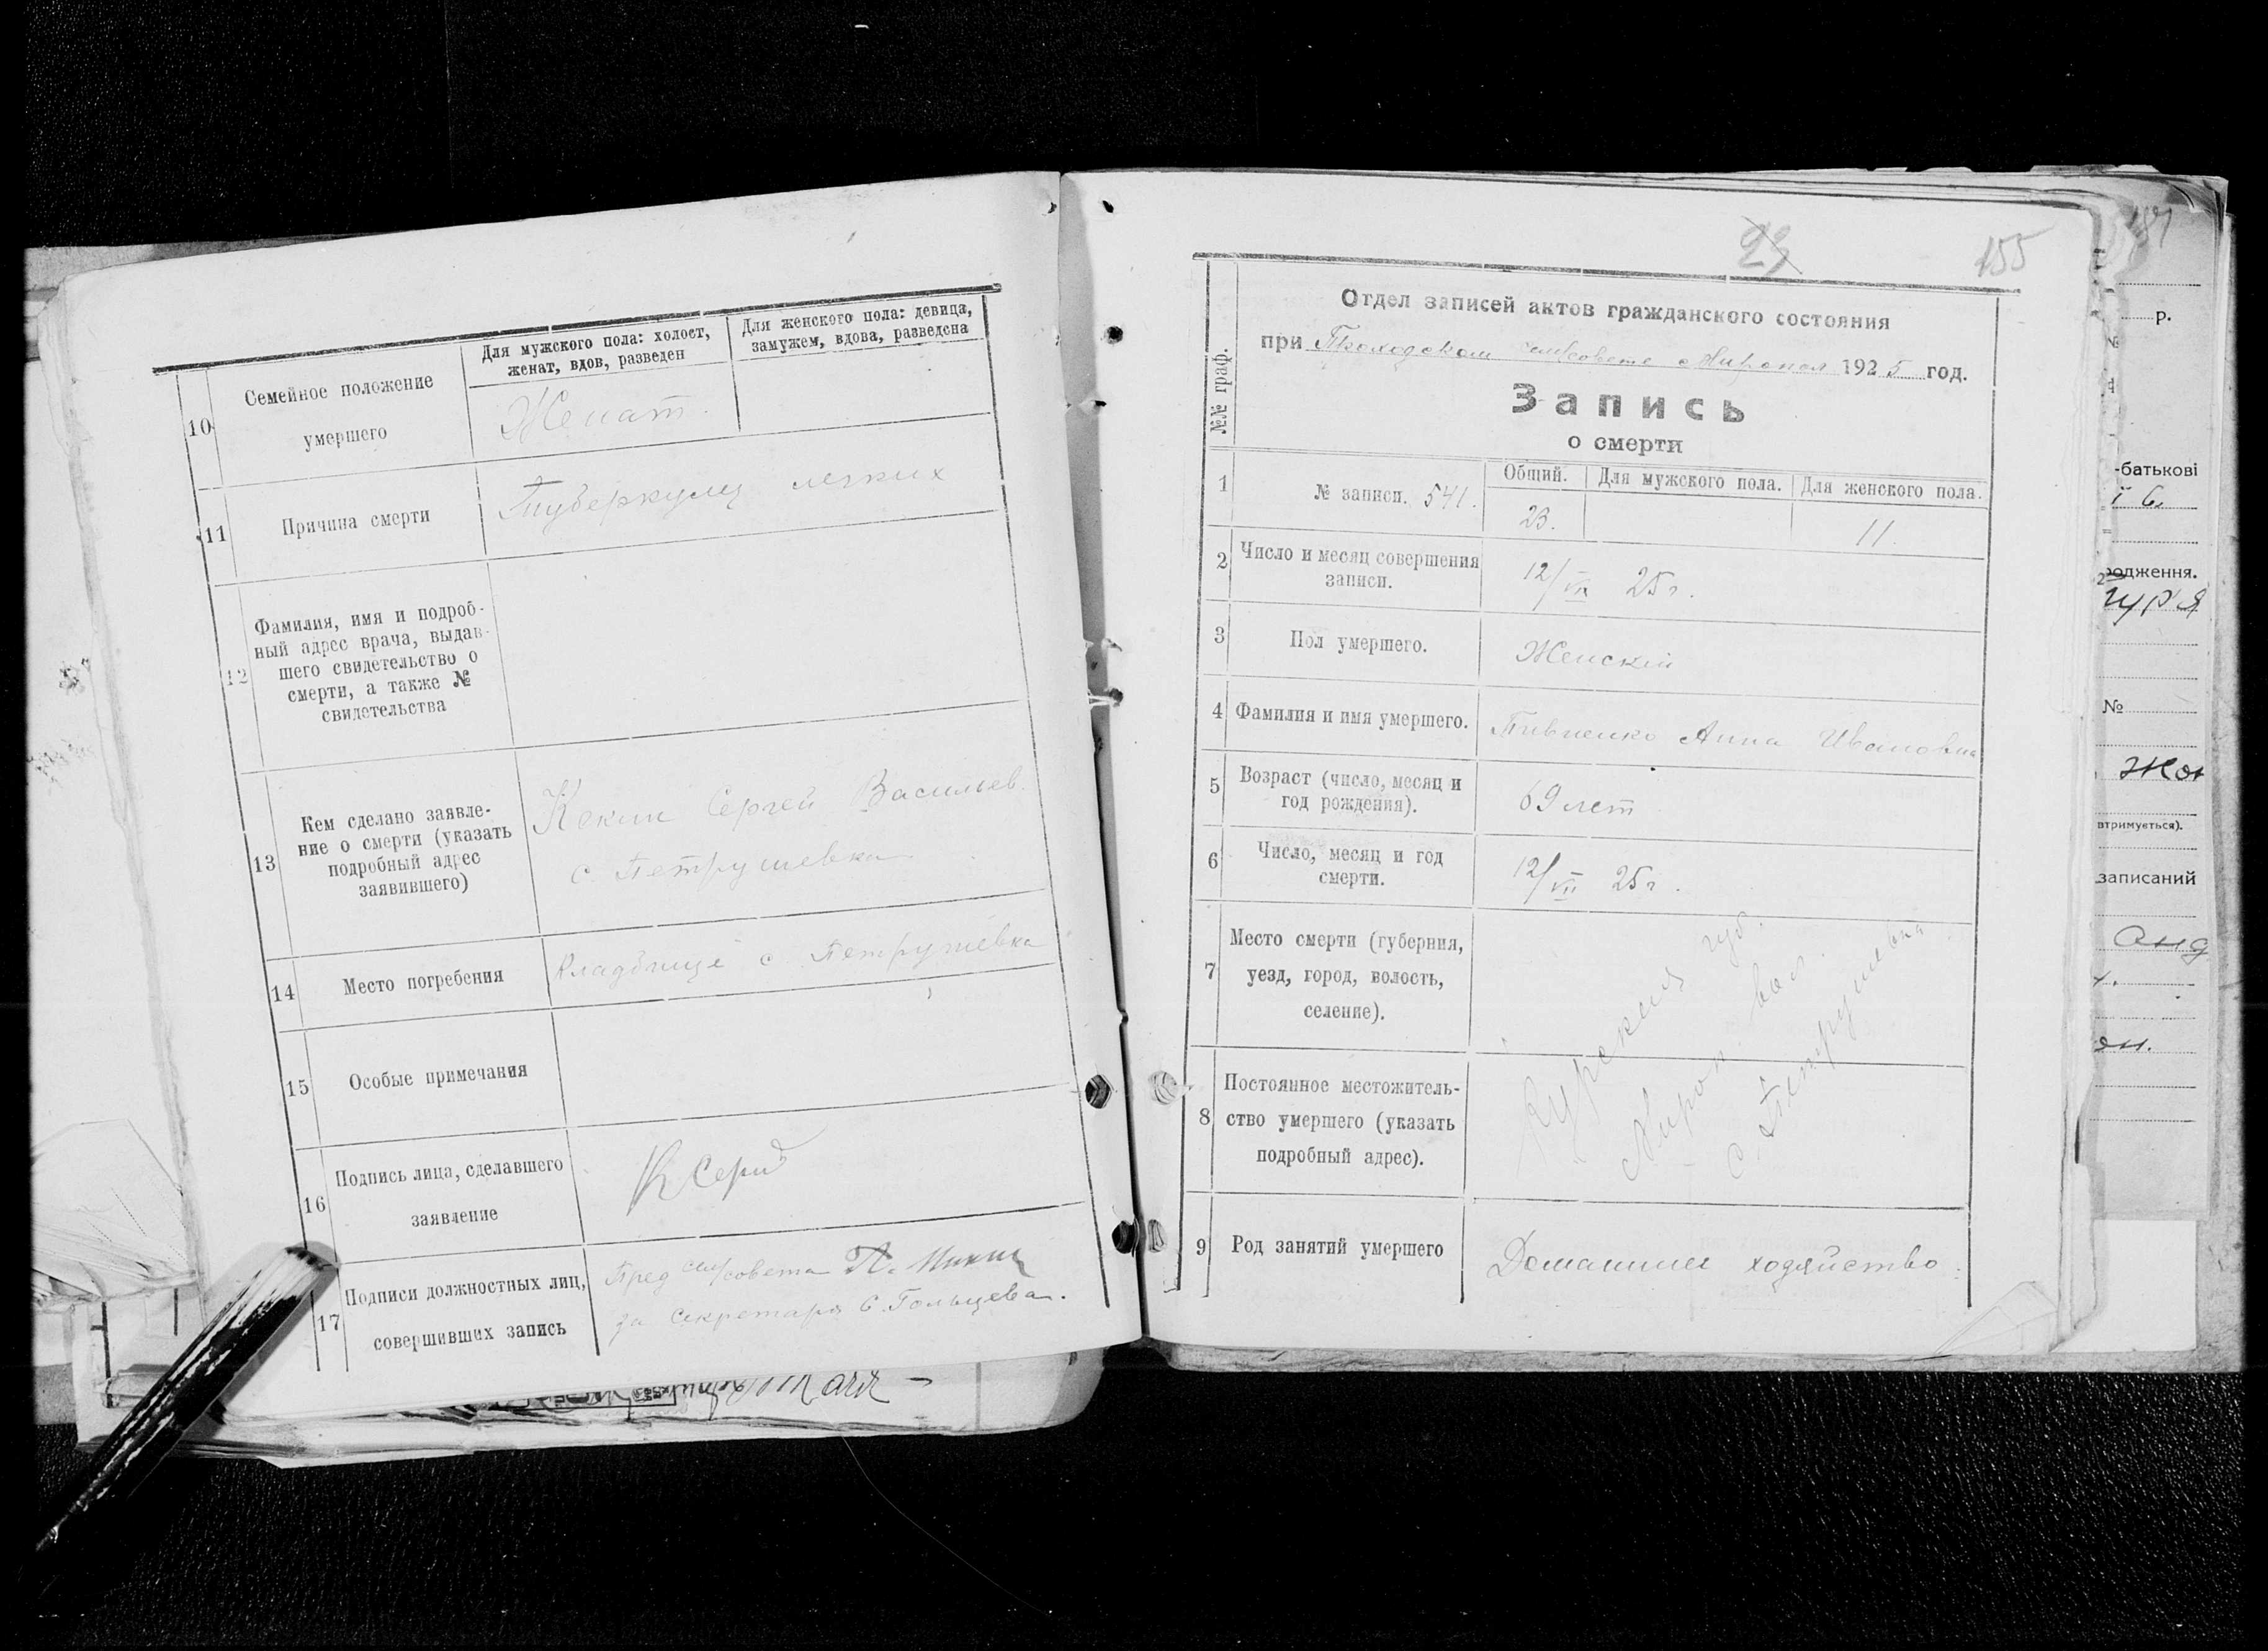 10
Семейное положение
умершего
Для мужского пола: холост,
женат, вдов, разведен
Для женского пола: девица,
замужем, вдова, разведена
Женат.
11
Причина смерти
Туберкулез легких
12
Фамилия, имя и подроб-
ный адрес врача, выдав-
шего свидетельство о
смерти, а также №
свидетельства
13
Кем сделано заявле-
ние о смерти (указать
подробный адрес
заявившего)
Кекин Сергей Васильев.
с. Петрушевка
14
Место погребения
Кладбище с. Петрушевка
15
Особые примечания
16
Подпись лица, сделавшего
заявление
17
Подписи должностных лиц,
совершивших запись
Пред сельсовета П.
за Секретаря С. Гольцева.
23
155
№№ граф.
Отдел записей актов гражданского состояния
при Проходском сельсовете Миропол 1925 год.
Запись
о смерти
1
№ записи. 541.
Общий.
Для мужского пола.
Для женского пола.
23.
11.
2
Число и месяц совершения
записи.
12/VII 25 г.
3
Пол умершего.
Женский
4
Фамилия и имя умершего.
Пивненко Анна Ивановна
5
Возраст (число, месяц и
год рождения).
69 лет
6
Число, месяц и год
смерти.
12/VII 25 г.
7
Место смерти (губерния,
уезд, город, волость,
селение).
8
Постоянное местожитель-
ство умершего (указать
подробный адрес).
Курская губ.
Мироп. вол.
с. Петрушевка
9
Род занятий умершего
Домашнее хозяйство.
р.
№
-батькові
і б.
родження.
№
Жон
втримується).
записаний